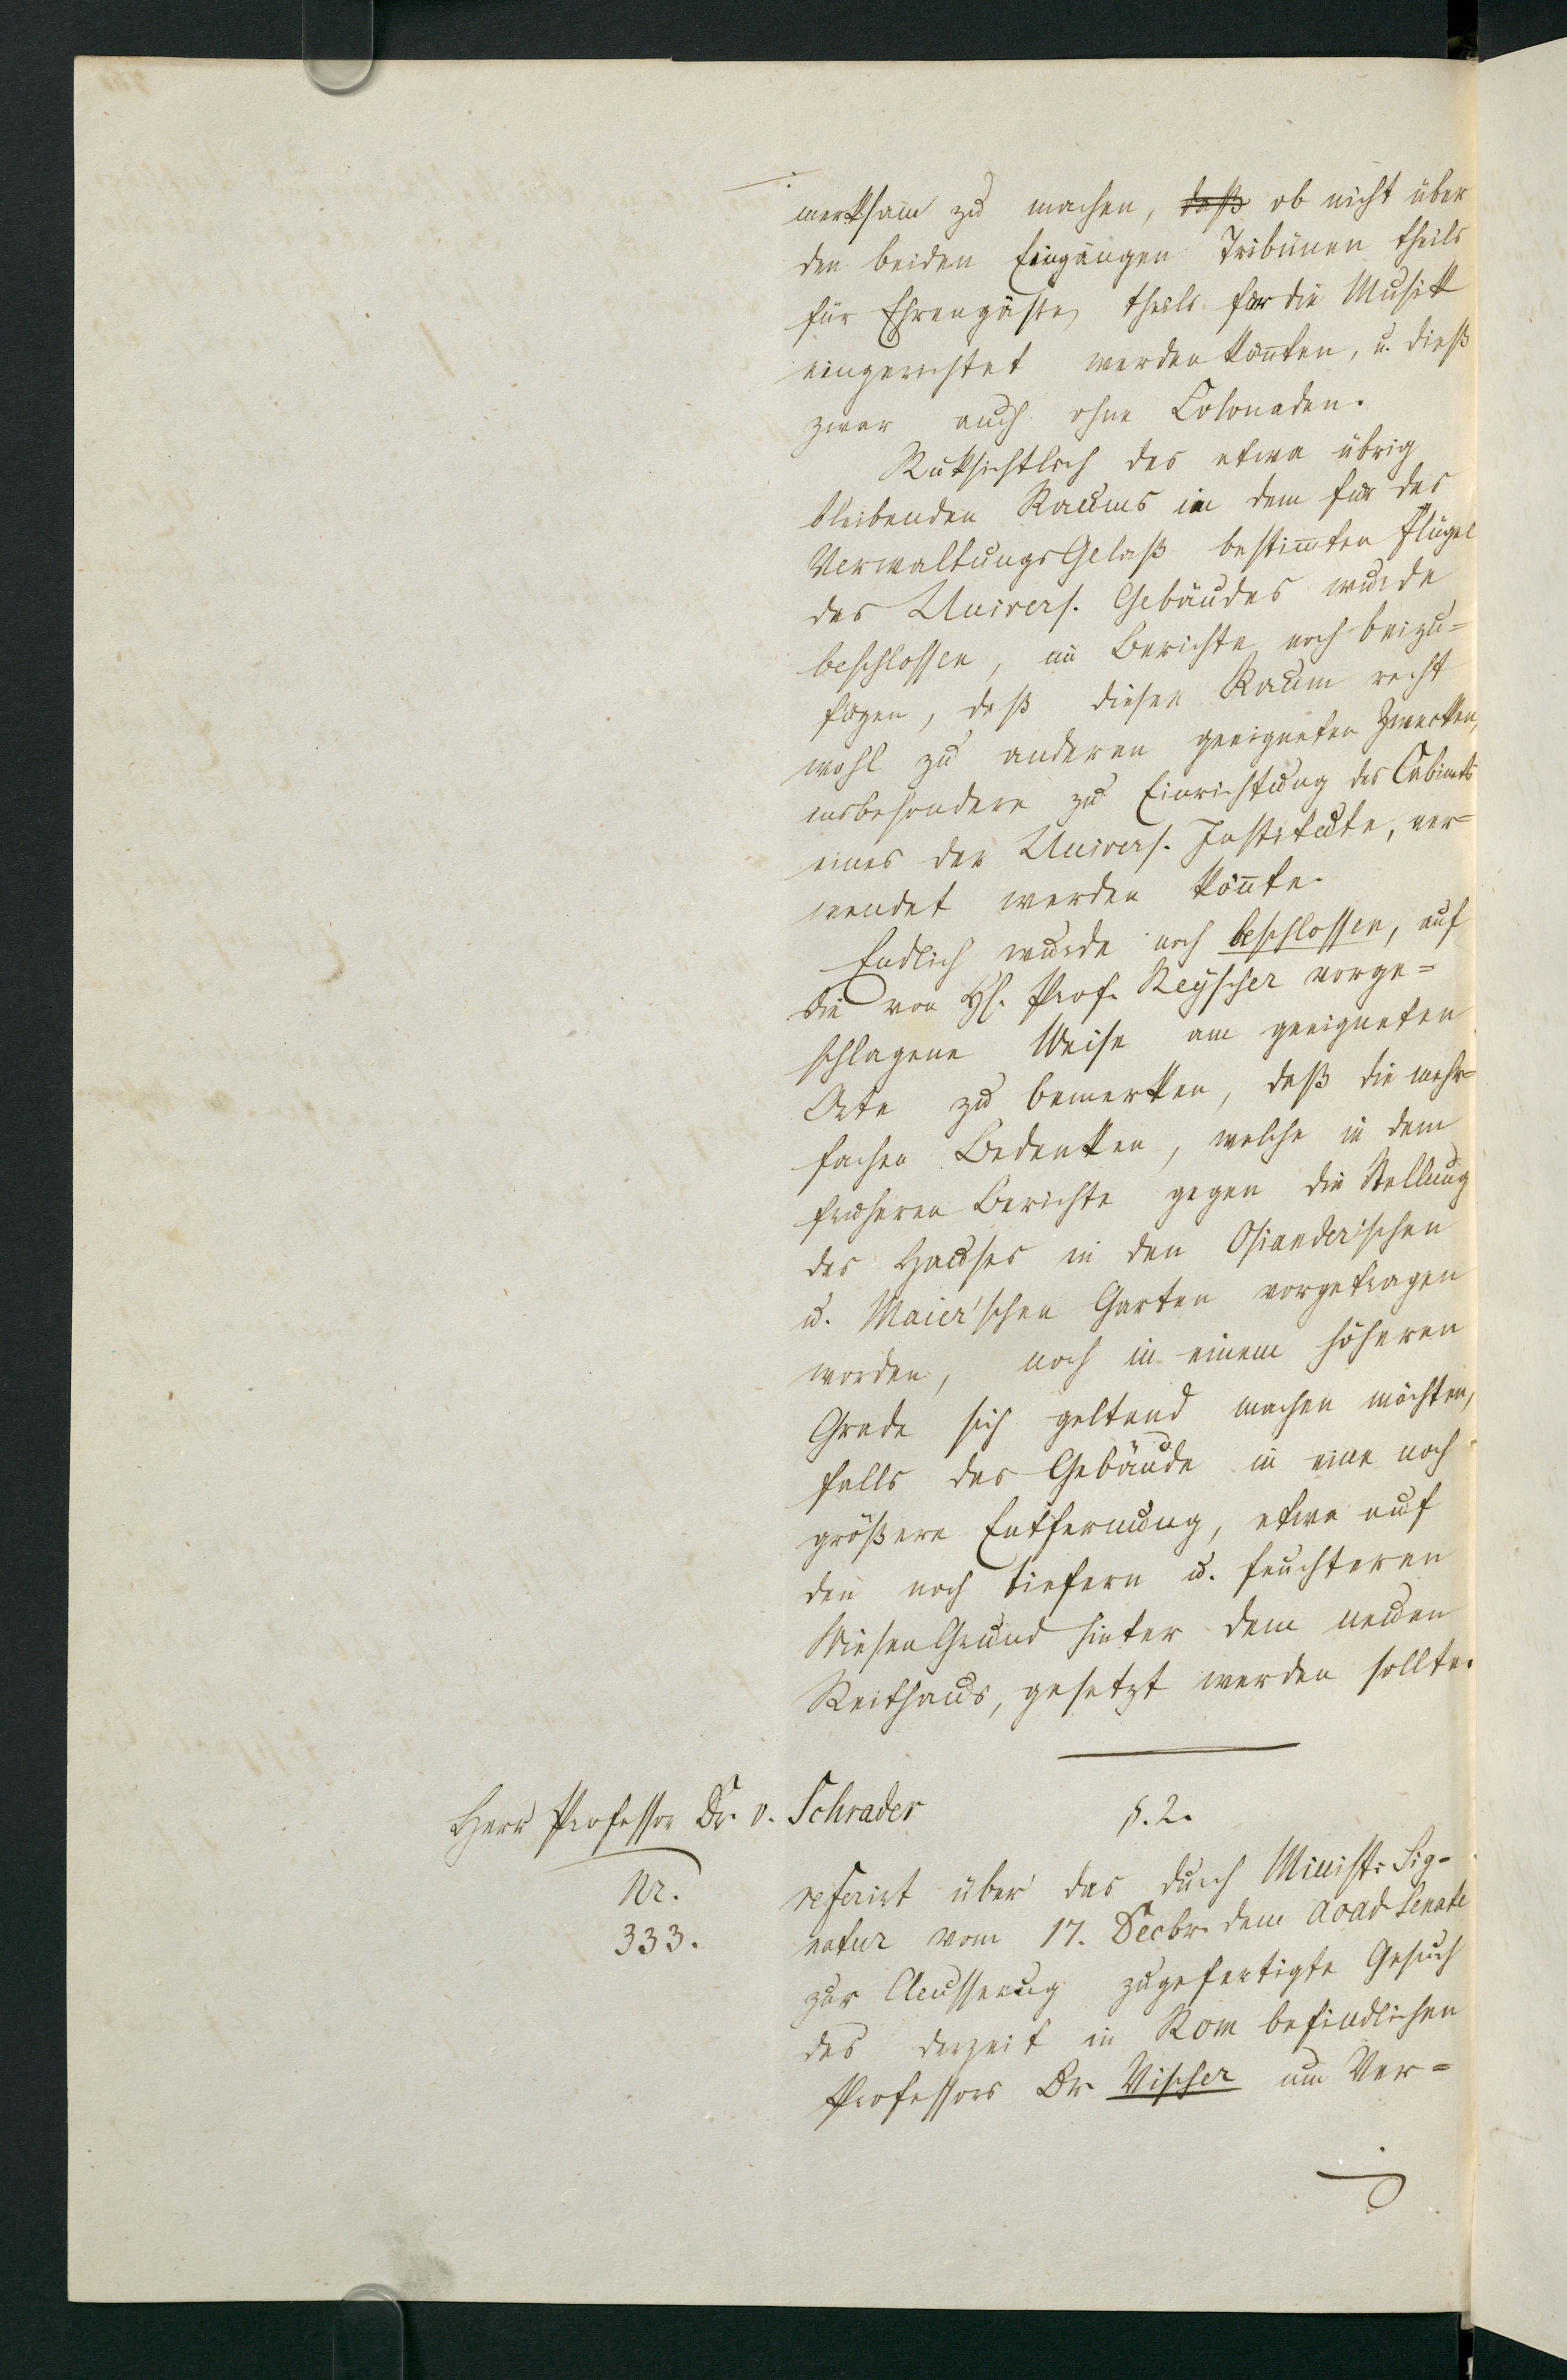 merksam zu machen, daß ob nicht über
den beiden Eingängen Tribünen theils
für Ehrengäste, theils für die Musik
eingerichtet werden könnten, u. dieß
zwar auch ohne Colonaden.
Rüksichtlich des etwa übrig
bleibenden Raums in dem für das
VerwaltungsGelaß bestimmten Flügel
des Univers. Gebäudes wurde
beschlossen, im Berichte noch beizu=
fügen, daß dieser Raum recht
wohl zu anderen geeigneten Zwecken,
insbesondere zu Einrichtung des Cabinets
eines der Univers. Institute, ver=
wendet werden könnte.
Endlich wurde noch beschlossen, auf
die von H. Prof. Reyscher vorge=
schlagene Weise am geeigneten
Orte zu bemerken, daß die mehr=
fachen Bedenken, welche in dem
früheren Berichte gegen die Stellung
des Hauses in den Osiander'schen
u. Maier'schen Garten vorgetragen
worden, noch in einem höheren
Grade sich geltend machen möchten,
falls das Gebäude in eine noch
größere Entfernung, etwa auf
den noch tiefern u. feuchteren
WiesenGrund hinter dem neuen
Reithaus, gesetzt werden sollte.
Herr Professor Dr. v. Schrader
§. 2.
Nr.
333.
referirt über das durch Minist: Sig=
natur vom 17. Decbr. dem Acad Senate
zur Aeusserung zugefertigte Gesuch
des derzeit in Rom befindlichen
Professors Dr Vischer um Ver=